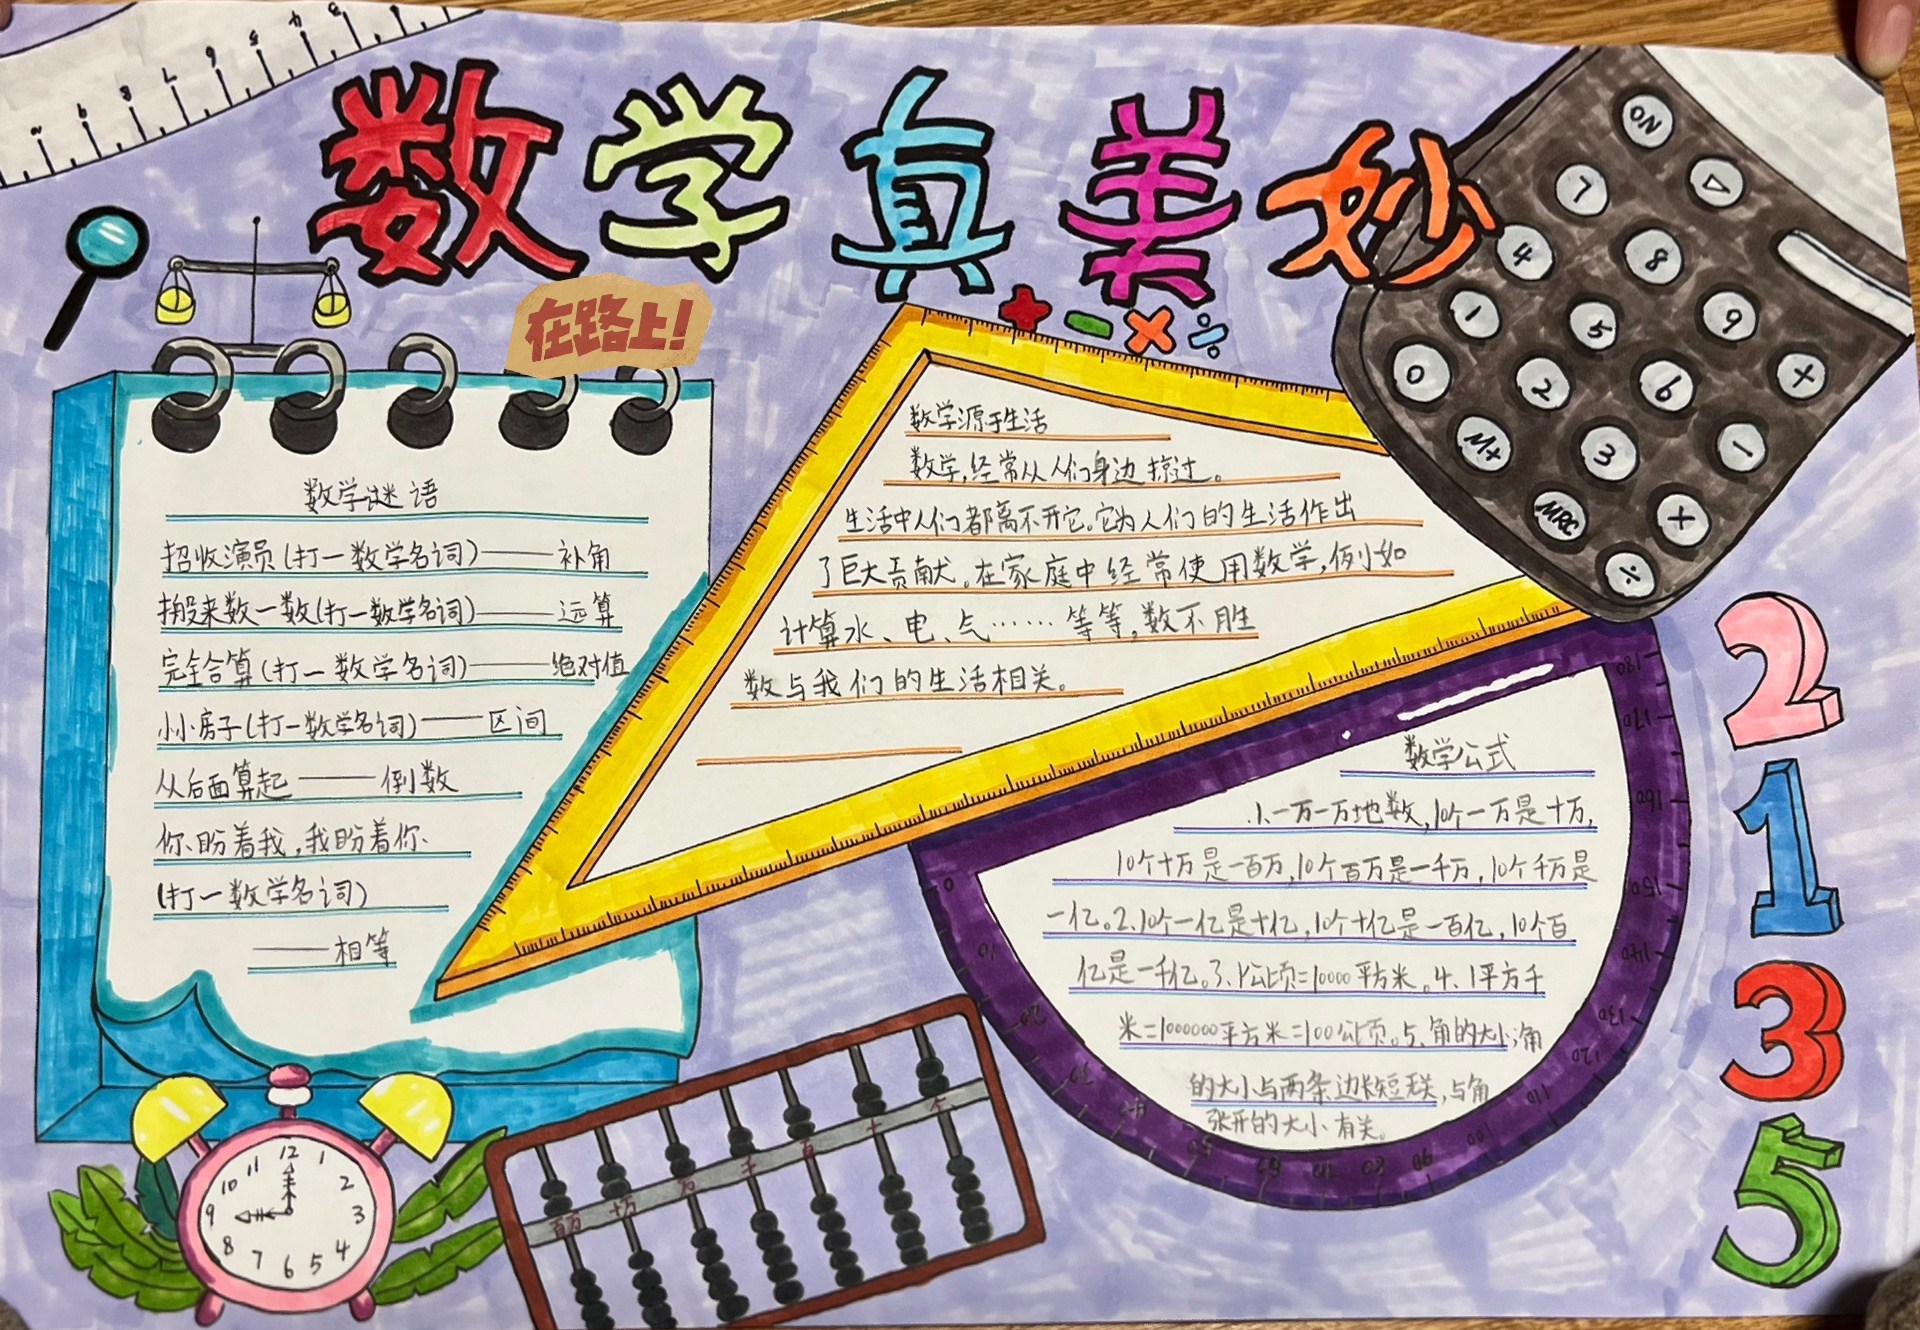 数学真美妙
在路上!
数学谜语
招收演员(打一数学名词)——补角
搬来数一数(打一数学名词)——运算
完全合算(打一数学名词)——绝对值
小小房子(打一数学名词)——区间
从后面算起——倒数
你盼着我,我盼着你
(打一数学名词)
——相等
数学源于生活
数学,经常从人们身边掠过。
生活中人们都离不开它。它为人们的生活作出
了巨大贡献。在家庭中经常使用数学,例如
计算水、电、气……等等,数不胜
数与我们的生活相关。
数学公式
1、一万一万地数,10个一万是十万,
10个十万是一百万,10个百万是一千万,10个千万是
一亿。2、10个一亿是十亿,10个十亿是一百亿,10个百
亿是一千亿。3、1公顷=10000平方米。4、1平方千
米=1000000平方米=100公顷。5、角的大小:角
的大小与两条边长短无关,与角
张开的大小有关。
ON
7
4 8
1 5 9
0 2 6 +
M+ 3 -
MRC ×
÷
2
1
3
5
12
11 1
10 2
9 3
8 4
7 6 5
百万 十万 万 千 百 十 个
0 10 20 30 40 50
90 100 110 120 130 140 150 160 170 180